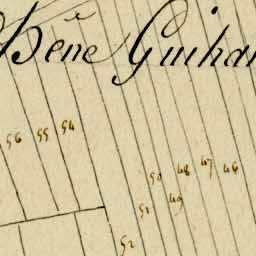 Béne Guihar
56 55 54
50 48 47 46
51 49
52